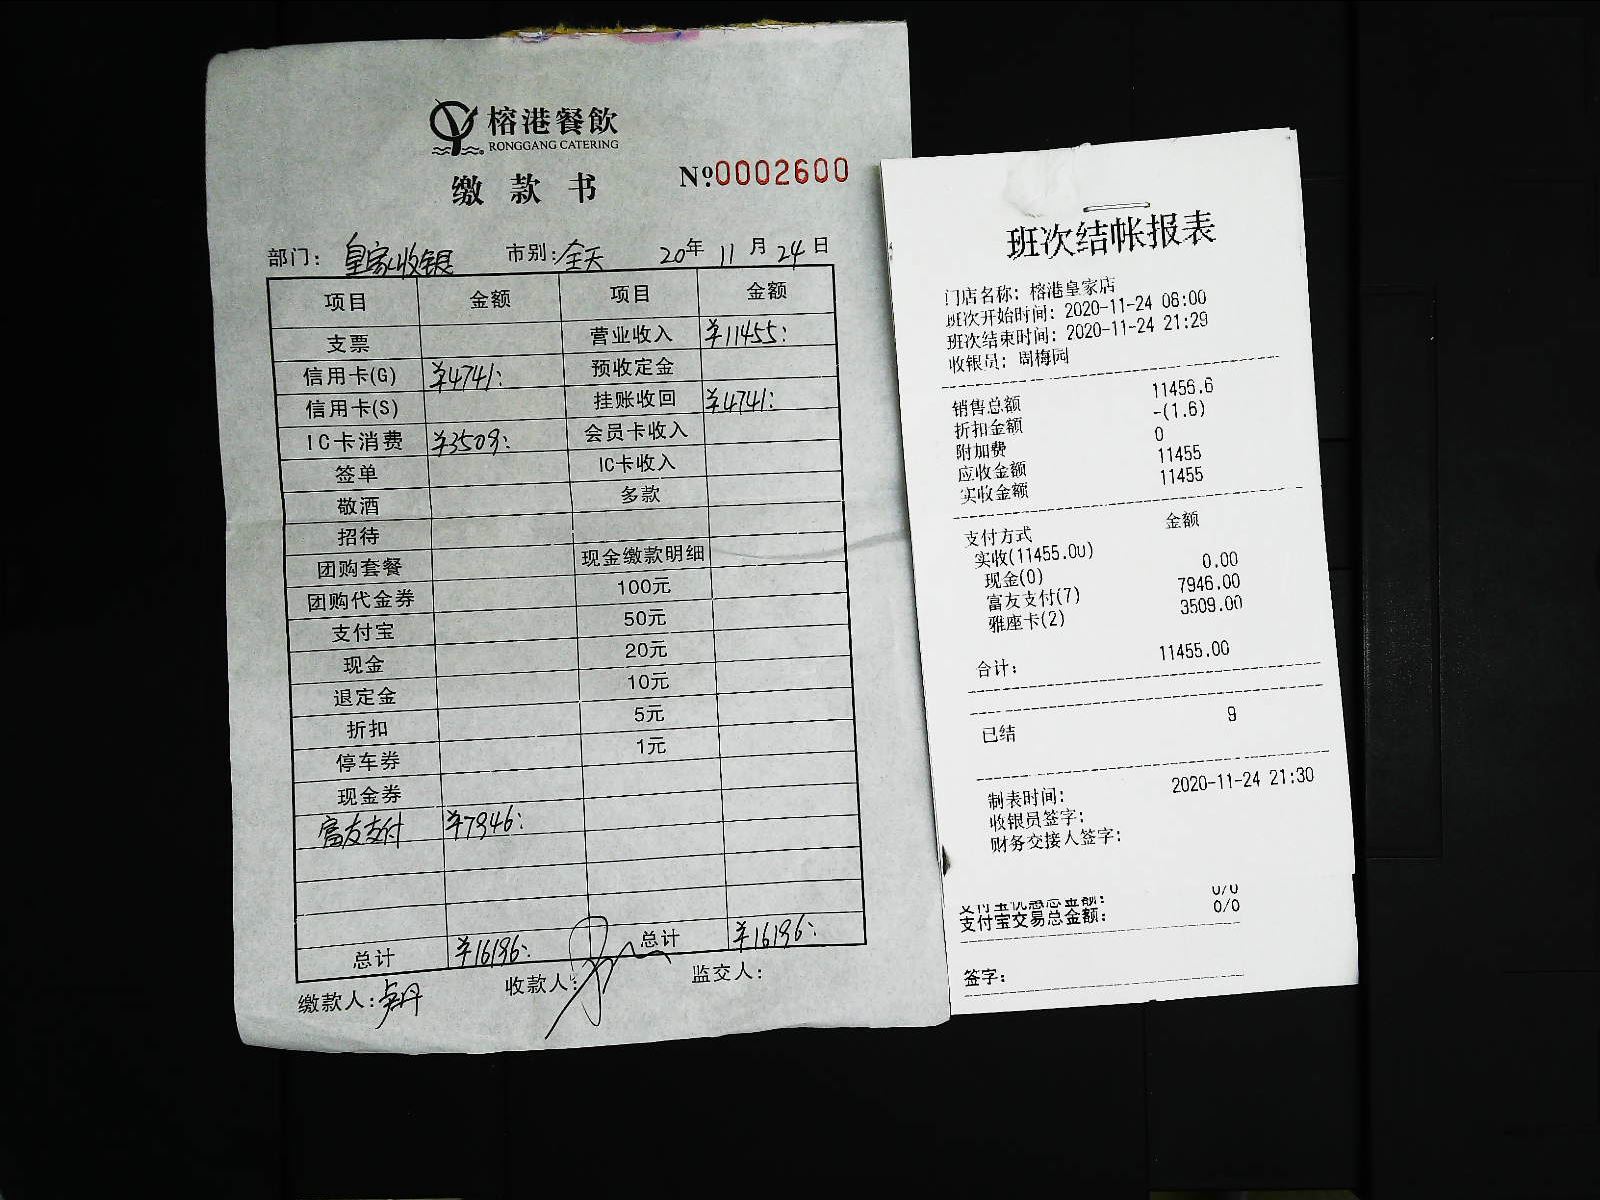 榕港餐飲
RONGGANG CATERING
缴款书
№0002600
部门：皇家收银 市别：全天 20年 11月 24日
项目 金额 项目 金额
支票 营业收入 ¥11455:
信用卡(G) ¥4741: 预收定金
信用卡(S) 挂账收回 ¥4741:
IC卡消费 ¥3509: 会员卡收入
签单 IC卡收入
敬酒 多款
招待
团购套餐 现金缴款明细
团购代金券 100元
支付宝 50元
现金 20元
退定金 10元
折扣 5元
停车券 1元
现金券
富友支付 ¥7946:
总计 ¥16196: 总计 ¥16196:
缴款人： 收款人： 监交人：
班次结帐报表
门店名称: 榕港皇家店
班次开始时间: 2020-11-24 06:00
班次结束时间: 2020-11-24 21:29
收银员: 周梅园
销售总额 11456.6
折扣金额 -(1.6)
附加费 0
应收金额 11455
实收金额 11455
支付方式 金额
实收(11455.00)
现金(0) 0.00
富友支付(7) 7946.00
雅座卡(2) 3509.00
合计: 11455.00
已结 9
制表时间: 2020-11-24 21:30
收银员签字:
财务交接人签字:
支付宝优惠总金额: 0/0
支付宝交易总金额: 0/0
签字: